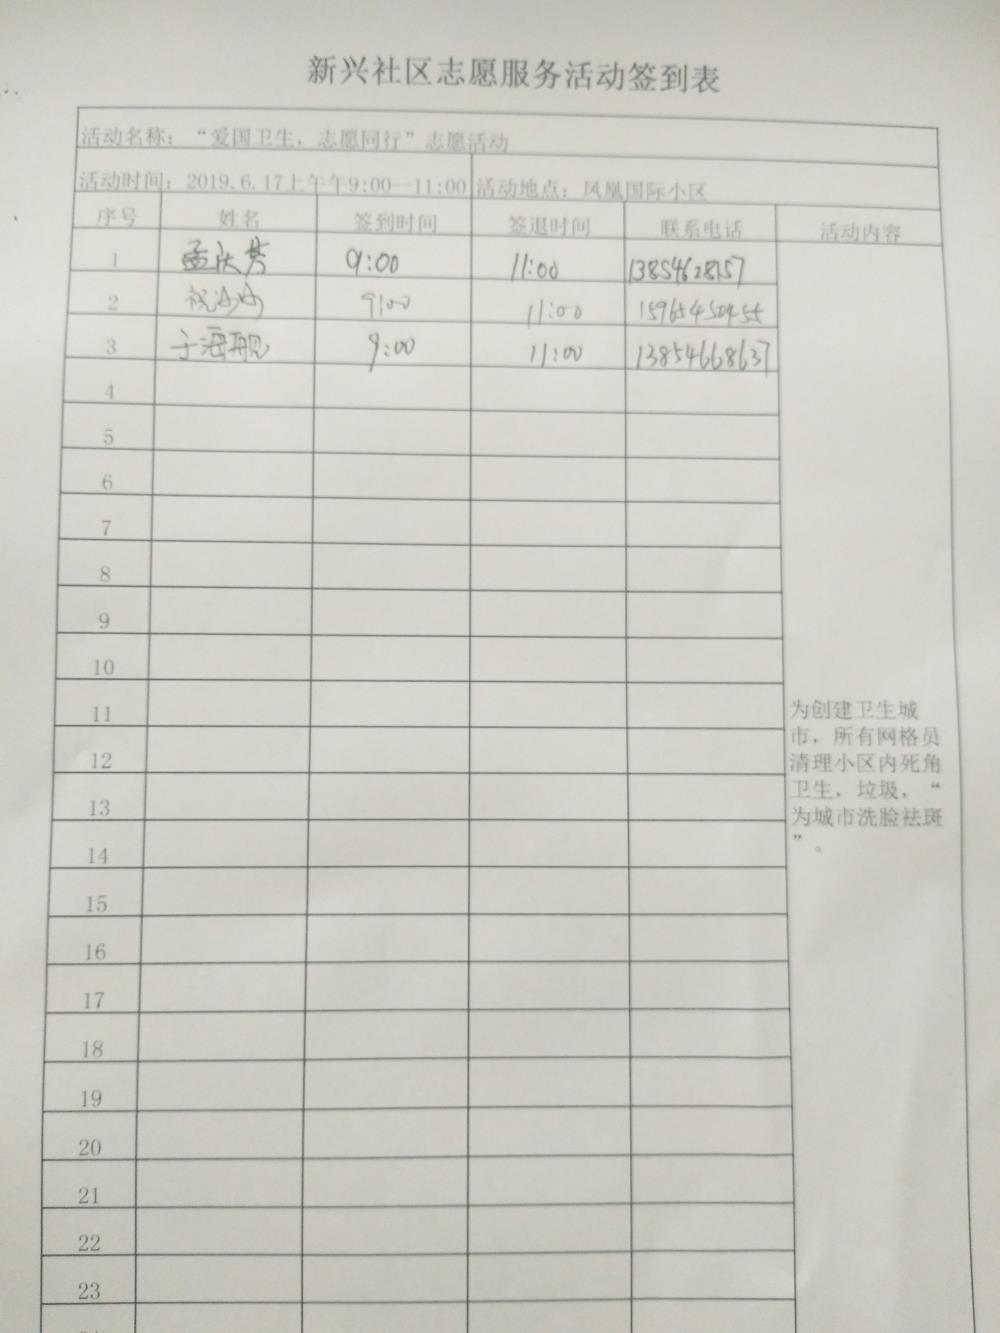 新兴社区志愿服务活动签到表
活动名称：“爱国卫生，志愿同行”志愿活动
活动时间：2019.6.17上午午9:00—11:00 活动地点：凤凰国际小区
序号 姓名 签到时间 签退时间 联系电话 活动内容
1 孟庆芬 9:00 11:00 13854628157
2 祝 9:00 11:00 15965450455
3 于海舰 9:00 11:00 13854668637
4
5
6
7
8
9
10
11
12
13
14
15
16
17
18
19
20
21
22
23
为创建卫生城
市，所有网格员
清理小区内死角
卫生，垃圾，“
为城市洗脸祛斑
”。